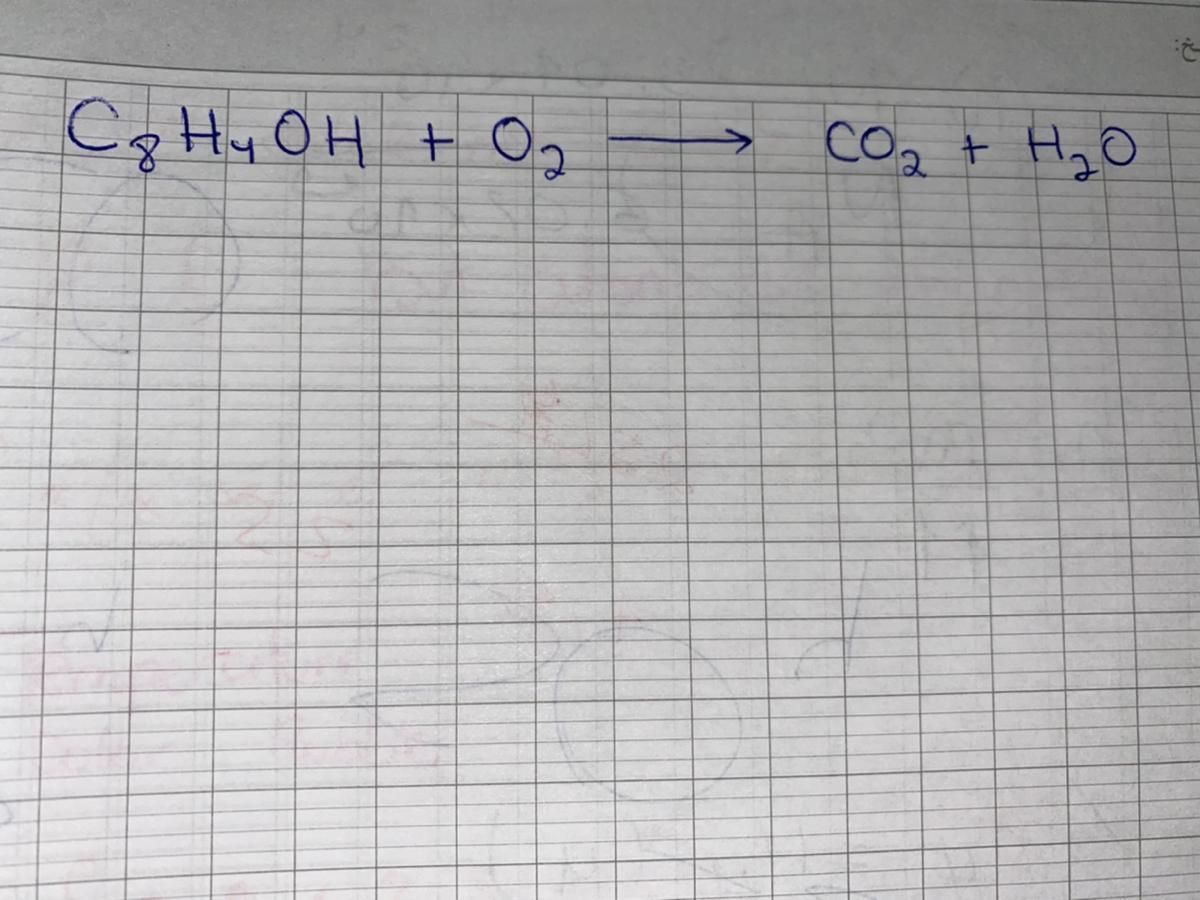 C₈H₄OH + O₂ → CO₂ + H₂O